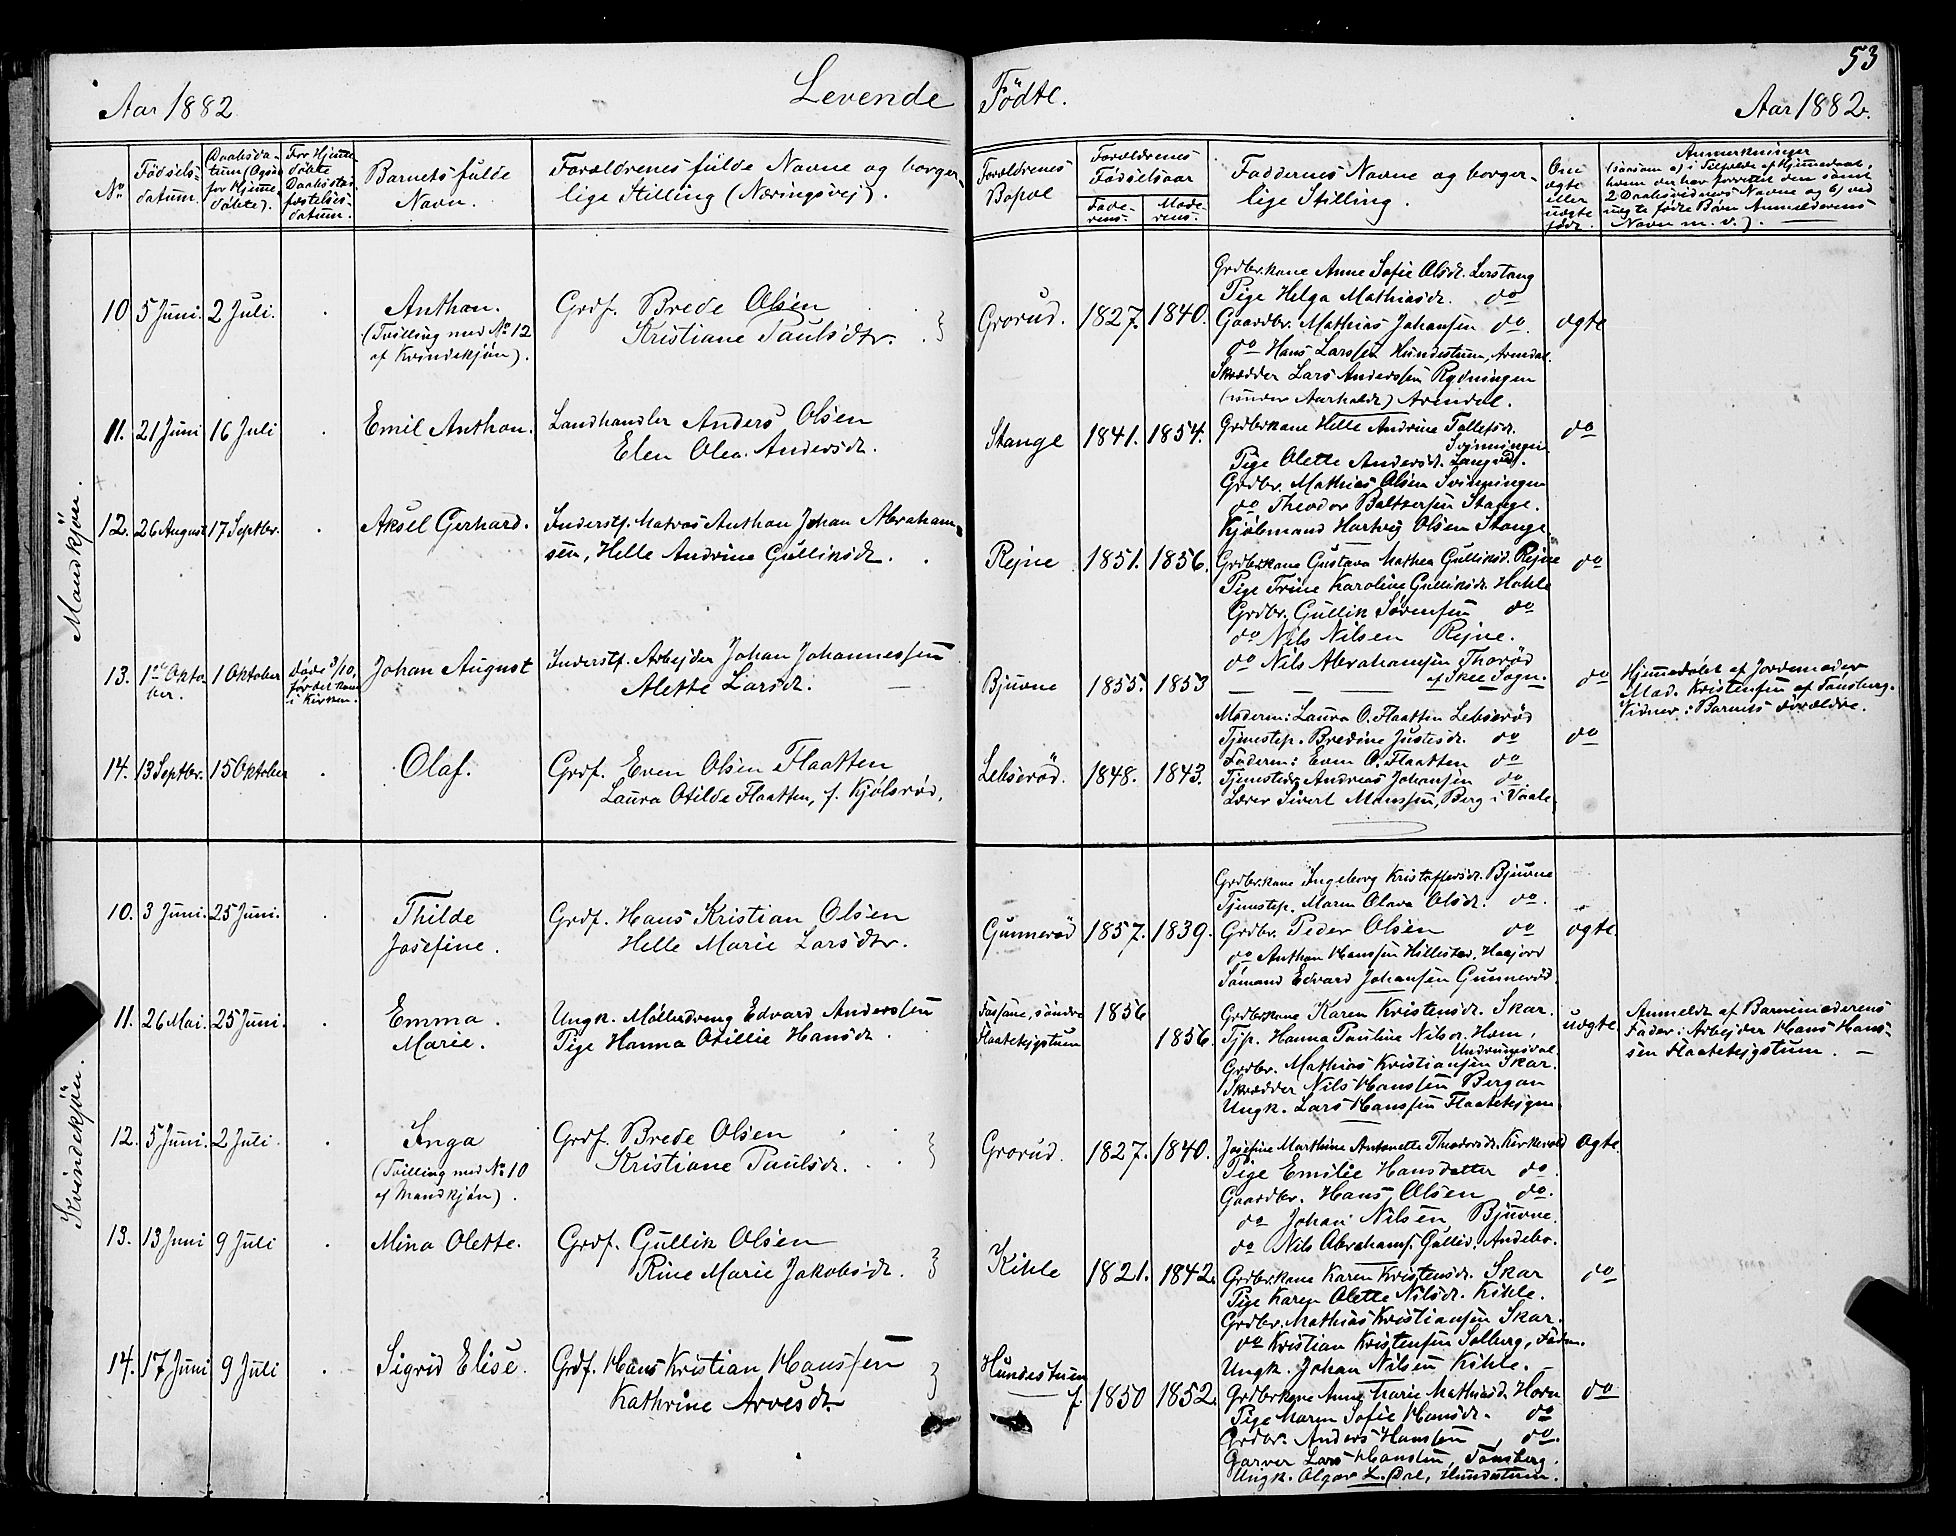 53
Aar 1882
Levende
Fødte.
Aar 1882.
No
Fødsels-
datum.
Daabsda-
tum (Ogsaa
for Hjemme-
døbte).
For Hjemme-
døbte
Daabsstad-
fæstelses-
datum.
Barnets fulde
Navn.
Forældrenes fulde Navne og borger-
lige Stilling (Næringsvej).
Forældrenes
Bopæl
Forældrenes
Fødselsaar
Fade-
rens.
Mode-
rens.
Faddernes Navne og borger-
lige Stilling.
Om
ægte
eller
uægte
født.
Anmærkninger
(saasom a) i Tilfælde af Hjemmedaab,
hvem der har forrettet den samt
2 Daabsvidners Navne og b) ved
uægte fødte Børn Anmelderens
Navn m. v.).
Mandkjøn.
10. 5 Juni. 2 Juli.
Anthon.
(Tvilling med No 12
af Kvindekjøn).
Grdf. Brede Olsen
Kristiane Paulsdtr.
Grorud. 1827. 1840.
Grdbr.kone Anne Sofie Olsdt. Lerstang
Pige Helga Mathiasdt. do
Gaardbr. Mathias Johansen do.
do Hans Larssen Hundestuen, Arendal.
Skrædder Lars Anderssen Rydningen
(under Aarholdt) Arendal.
ægte
11. 21 Juni 16 Juli
Emil Anthon.
Landhandler Anders Olsen
Elen Olea Andersdt.
Stange 1841. 1854.
Grdbrkone Helle Andrine Tollefsdt.
Svinningen
Pige Olette Andersdt. Langvd.
Grdbr. Mathias Olsen Svinningen
do Theodor Baltsersen Stange.
Kjøbmand Hartvig Olsen Stange
do
12. 26 August 17 Septbr.
Aksel Gerhard.
Inderstf. Matros Anthon Johan Abraham-
sen, Helle Andrine Gulliksdt.
Rejne 1851. 1856.
Grdbrkone Gustava Mathea Gulliksdt. Rejne
Pige Trine Karoline Gulliksdt. Hohle
Grdbr. Gullik Sørensen do
do Nils Nilsen Rejne.
do Nils Abrahamsen Thorød
af Skee Sogn.
do
13. 1ste Okto-
ber. 1 Oktober
døde 3/10,
før det kom
i Kirken.
Johan August
Inderstf. Arbejder Johan Johannessen
Alette Larsdt.
Bjuvne 1855. 1853
do
Hjemmedøbt af Jordemoder
Mad. Kristensen af Tønsberg.
Vidner: Barnets Forældre.
14. 13 Septbr. 15 Oktober
Olaf.
Grdf. Even Olsen Flaatten
Laura Otilde Flaatten, f. Kjølsrød.
Lebserød. 1848. 1843.
Moderen: Laura O. Flaatten Lebserød
Tjenestep. Bredine Justesdt. do
Faderen: Even O. Flaatten do
Tjenestedr. Andreas Johansen do
Lærer Sivert Monssen, Berg i Vaale
do
Kvindekjøn.
10. 3 Juni. 25 Juni.
Thilde
Josefine.
Grdf. Hans Kristian Olsen
Helle Marie Larsdtr.
Gunnerød 1857. 1839.
Grdbr.kone Ingeborg Kristoffersdt. Bjuvne
Tjenstep. Maren Olava Olsdt. do.
Grdbr. Peder Olsen do
do Anthon Hanssen Hillestad,
Sømand Edvard Johansen Gunnerød.
ægte.
11. 26 Mai. 25 Juni.
Emma
Marie.
Ungk. Mølledreng Edvard Anderssen
Pige Hanna Otillie Hansdt.
Fossane, søndre
Flaatetejgstuen
1856
1856.
Grdbrkone Karen Kristensdt. Skar.
Tjp. Hanna Pauline Nilsd. Hem,
Undrumsdal.
Grdbr. Mathias Kristiansen Skar.
Skrædder Nils Hanssen Bergan
Ungk. Lars Hanssen Flaatetejgen
uægte
Anmeldt af Barnemoderens
Fader: Arbejder Hans Hans-
sen Flaatetejgstuen.
12. 5 Juni. 2 Juli.
Inga
(Tvilling med No 10
af Mandkjøn).
Grdf. Brede Olsen
Kristiane Paulsdt.
Grorud. 1827. 1840.
Josefine Marthine Antonette Theodorsdt. Kirkevold
Pige Emilie Hansdatter do.
Gaardbr. Hans Olsen do.
do Johan Nilsen Bjuvne.
do Nils Abrahams. Gullid. Andebo.
Ægte.
13. 13 Juni 9 Juli
Mina Olette.
Grdf. Gullik Olsen
Rine Marie Jakobsdt.
Kihle 1821. 1842.
Grdbr.kone Karen Kristensdt. Skar
Pige Karen Olette Nilsdt. Kihle.
Grdbr. Mathias Kristiansen Skar.
do Kristian Kristensen Solberg,
Ungk. Johan Nilsen Kihle.
do
14. 17 Juni 9 Juli
Sigrid Elise.
Grdf. Hans Kristian Hanssen
Kathrine Arvesdt.
Hundestuen
1850 1852.
Grdbrkone Anne Marie Mathiasd. Horn
Pige Maren Sofie Hansdt. do
Grdbr. Anders Hanssen do.
Garver Lars Hanssen, Tønsberg.
Ungk. Olgar L. Dal, Hundestuen.
do